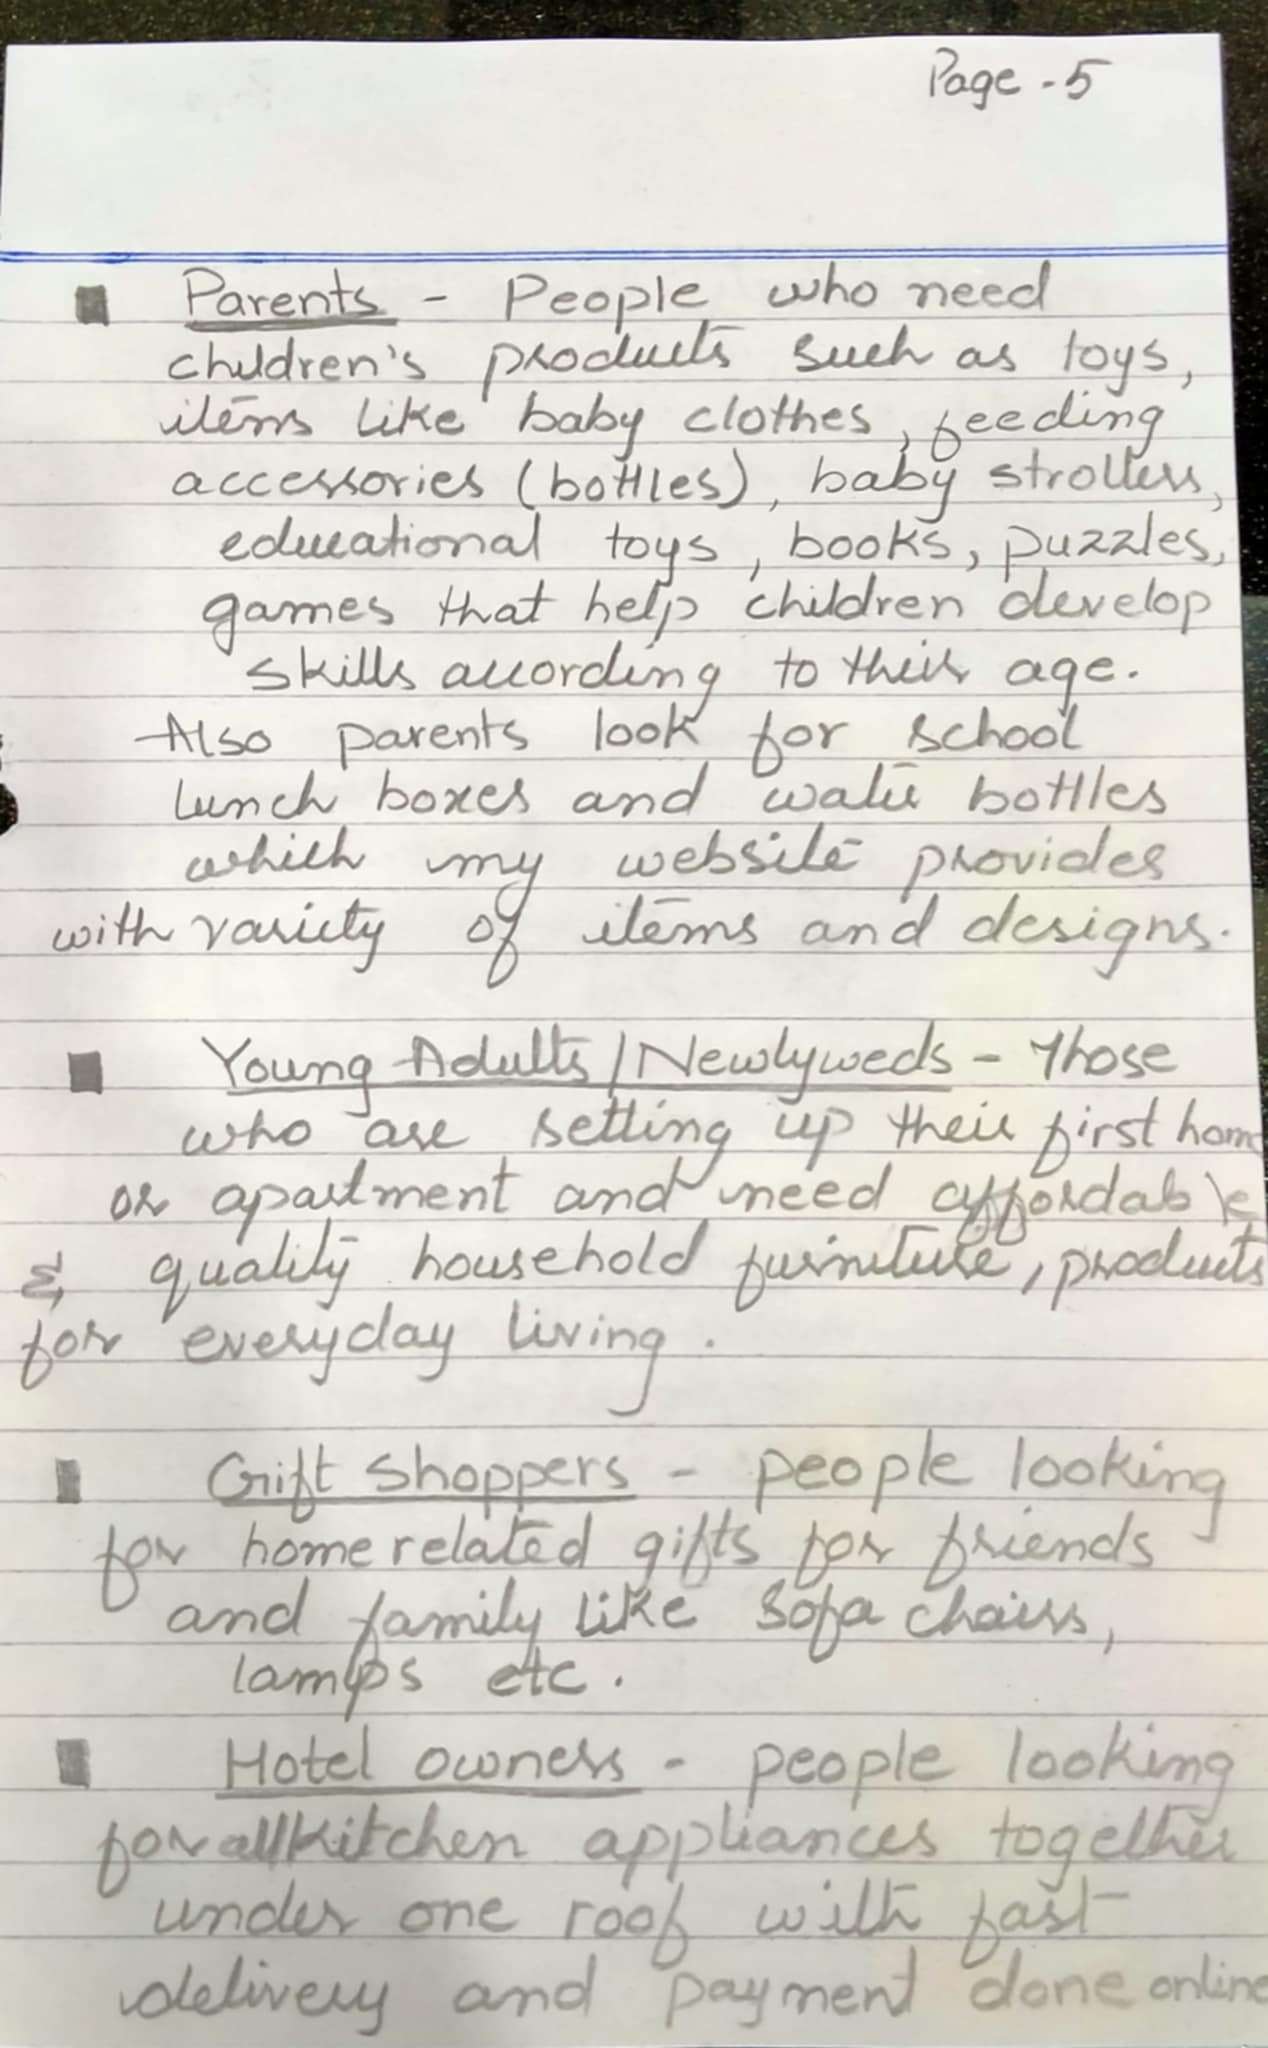 Page - 5
Parents - People who need
children's products such as toys,
items like baby clothes, feeding
accessories (bottles), baby strollers,
educational toys, books, puzzles,
games that help children develop
skills according to their age.
Also parents look for school
lunch boxes and water bottles
which my website provides
with variety of items and designs.
Young Adults/Newlyweds - Those
who are setting up their first home
or apartment and need affordable
& quality household furniture, products
for everyday living.
Gift Shoppers - people looking
for home related gifts for friends
and family like Sofa chairs,
lamps etc.
Hotel owners - people looking
for all kitchen appliances together
under one roof with fast
delivery and payment done online